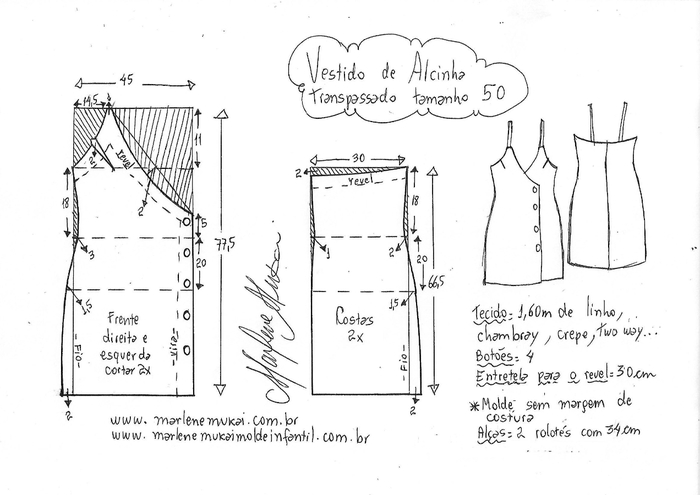 Vestido de Alcinha
transpassado tamanho 50
45
14,5
11
revel
2
2
18
5
3
20
77,5
1,5
Frente
direita e
esquerda
cortar 2x
Fio
vira
2
30
2
revel
18
1
2
20
66,5
1,5
Costas
2x
Fio
2
Marlene Mukai
Tecido= 1,60m de linho,
chambray, crepe, two way...
Botões= 4
Entretela para o revel= 30cm
*Molde sem margem de
costura
Alças= 2 rolotés com 34cm
www.marlenemukai.com.br
www.marlenemukaimoldeinfantil.com.br